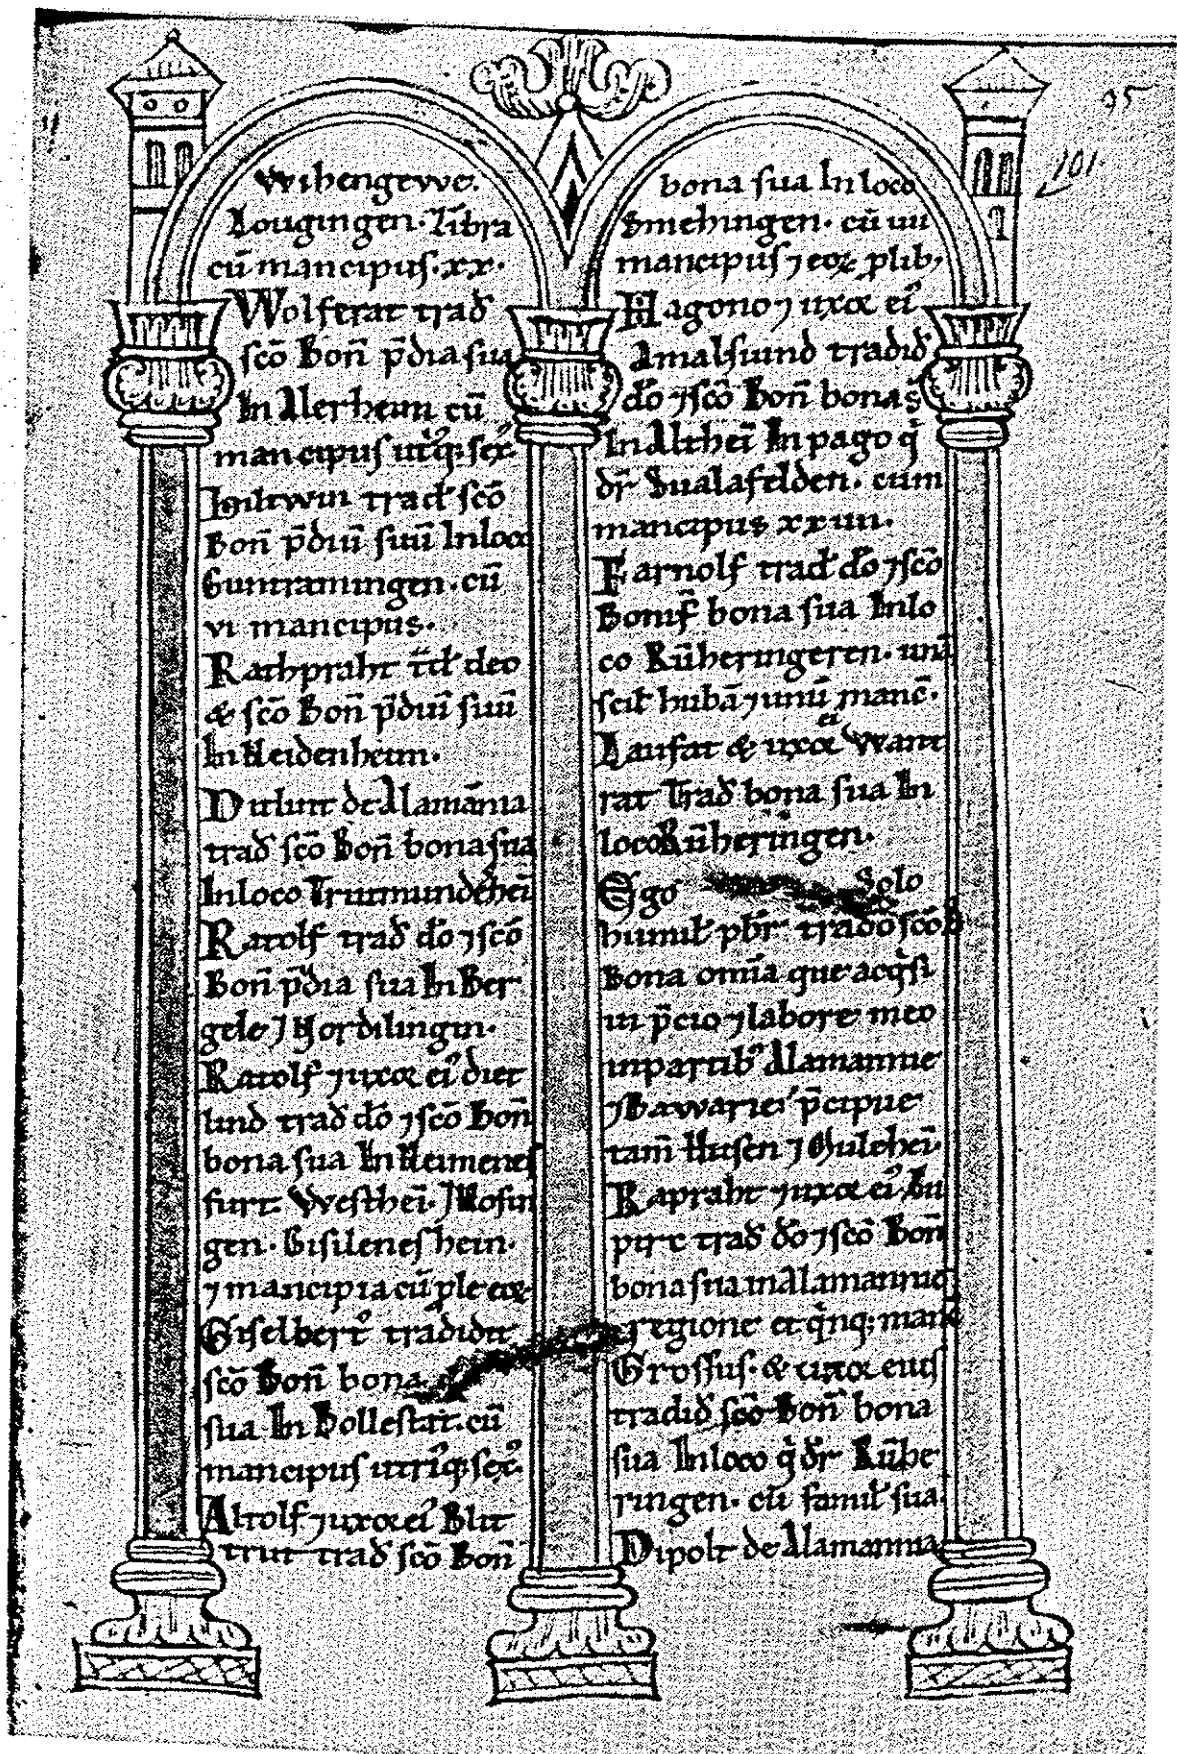 95
101
Wihengewe.
Lougingen. Libra
cū mancipiis. xx.
Wolferat trad
scō Bon̄ p̄dia sua
In Alerheim cū
mancipiis utͥq; sex̄.
trad scō
Bon̄ p̄diū suū In loco
Guntramingen. cū
vi mancipiis.
Rathpraht t̄d deo
& scō Bon̄ p̄diū suū
In Heidenheim.
de Alamānia
trad scō Bon̄ bona sua
In loco Trutmundeshei̅
Ratolf trad dō ⁊ scō
Bon̄ p̄dia sua In Ber
gele ⁊ Nordilingin.
Ratolf ⁊ uxor eiꝰ Diet
lind trad dō ⁊ scō Bon̄
bona sua In Heimenes
furt. Westhei̅. ⁊
gen. Gisileneshein.
⁊ mancipia cū
Giselbertꝰ tradidit
scō Bon̄ bona
sua In Hollestat. cū
mancipiis utriꝰq; sex̄.
Altolf ⁊ uxor eiꝰ Blit
trut trad scō Bon̄
bona sua In loco
Smehingen. cū uii
mancipiis ⁊ eoꝝ plib;
Hagono ⁊ uxor eiꝰ
Amalsuind tradid
dō ⁊ scō Bon̄ bona s̄
In Althei̅ In pago q̇
dr̄ Sualafelden. cum
mancipiis xxiiii.
Farnolf trad dō ⁊ scō
Bonif̄ bona sua In lo
co Rūheringeren. unā
scil hubā ⁊ unū manc̄.
Lanfat & uxor ei Want
rat Trad bona sua In
loco Rūheringen.
Ego Solo
humil pbr̄ trado scō B
Bona omīa que acq̇si
in p̄cio ⁊ labore meo
in partibꝰ Alamannie
⁊ Bawarie p̄cipue
tam̄ Husen ⁊ Sulchei̅.
Rapraht ⁊ uxor eiꝰ Lu
pirc trad dō ⁊ scō Bon̄
bona sua in Alamannica
regione et q̇nq; manc̄
Grossus. & uxor eius
tradid scō Bon̄ bona
sua In loco q̇ dr̄ Rūhe
ringen. cū famil sua.
Dipolt de Alamannia